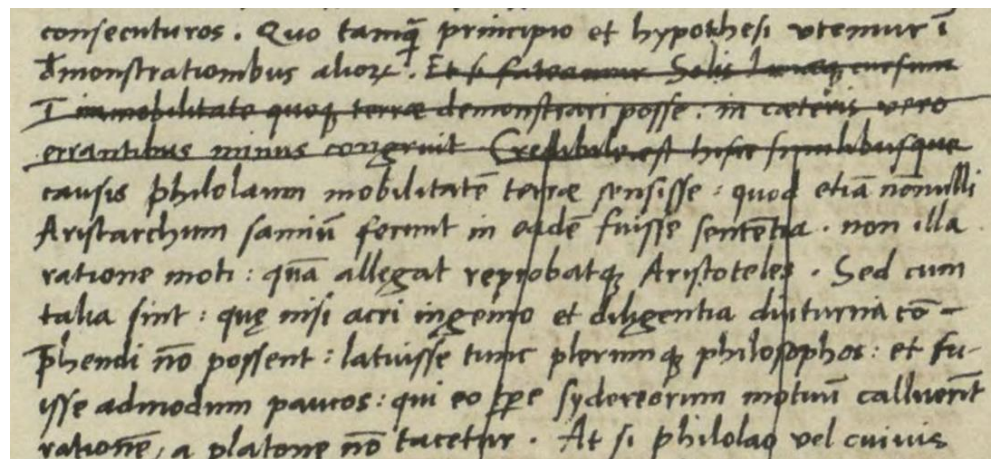 consecuturos . Quo tamq̃ principio et hypothesi vtemur ĩ
d̃monstrationibus alioꝝ . Et si fateamur Solis lunæq; cursum
ĩ immobilitate quoq; terræ demonstrari posse : in cæteris vero
errantibus minus congruit Credibile est hisce similibusque
causis philolaum mobilitatẽ terræ sensisse : quod etiã nõnulli
Aristarchum samiũ ferunt in eadẽ fuisse sentẽtia . non illa
ratione moti : quã allegat reprobatq; Aristoteles . Sed cum
talia sint : quę nisi acri ingenio et diligentia diuturna cõ-
p̃hendi nõ possent : latuisse tunc plerumq; philosophos : et fu-
isse admodum paucos : qui eo tp̃e sydereorum motuũ calluerĩt
rationẽ, a platone nõ tacetur . At si philolao vel cuiuis